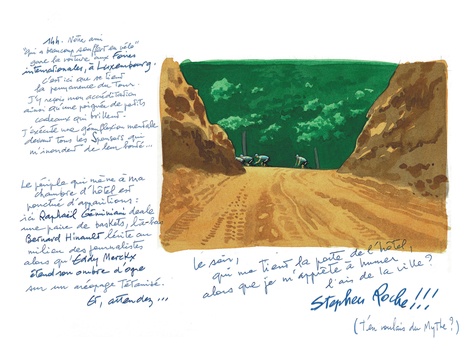 14h. Notre ami
"qui a beaucoup souffert en vélo"
gare la voiture aux Foires
internationales, à Luxembourg.
C'est ici que se tient
la permanence du Tour.
J'y reçois mon accréditation
ainsi qu'une poignée de petits
cadeaux qui brillent.
J'exécute une génuflexion mentale
devant tous les Sponsors qui
m'inondent de leur bonté...
Le périple qui mène à ma
chambre d'hôtel est
ponctué d'apparitions :
ici Raphaël Géminiani deale
une paire de baskets, là-bas
Bernard Hinault lévite au
milieu des journalistes
alors qu'Eddy Merckx
étend son ombre d'ogre
sur un aréopage tétanisé.
Et, attendez...
Le soir,
qui me tient la porte de l'hôtel,
alors que je m'apprête à humer
l'air de la ville ?
Stephen Roche!!!
(T'en voulais du Mythe ?)